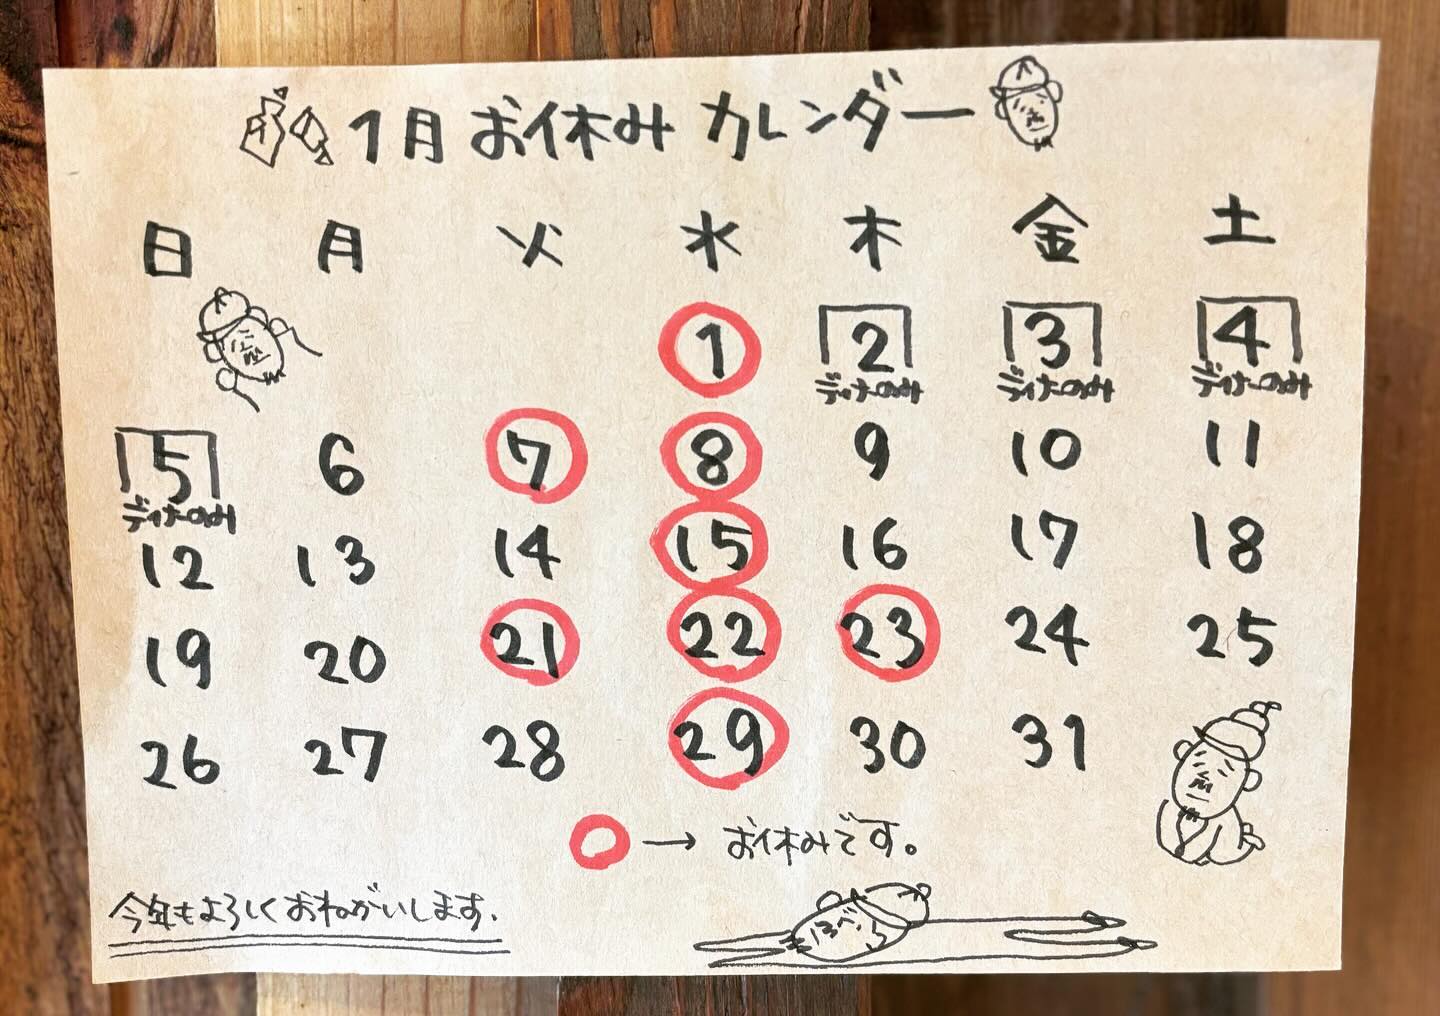 1月 お休み カレンダー
日 月 火 水 木 金 土
1 2 3 4
ディナーのみ ディナーのみ ディナーのみ
5 6 7 8 9 10 11
ディナーのみ
12 13 14 15 16 17 18
19 20 21 22 23 24 25
26 27 28 29 30 31
○→ お休みです。
今年もよろしくおねがいします.